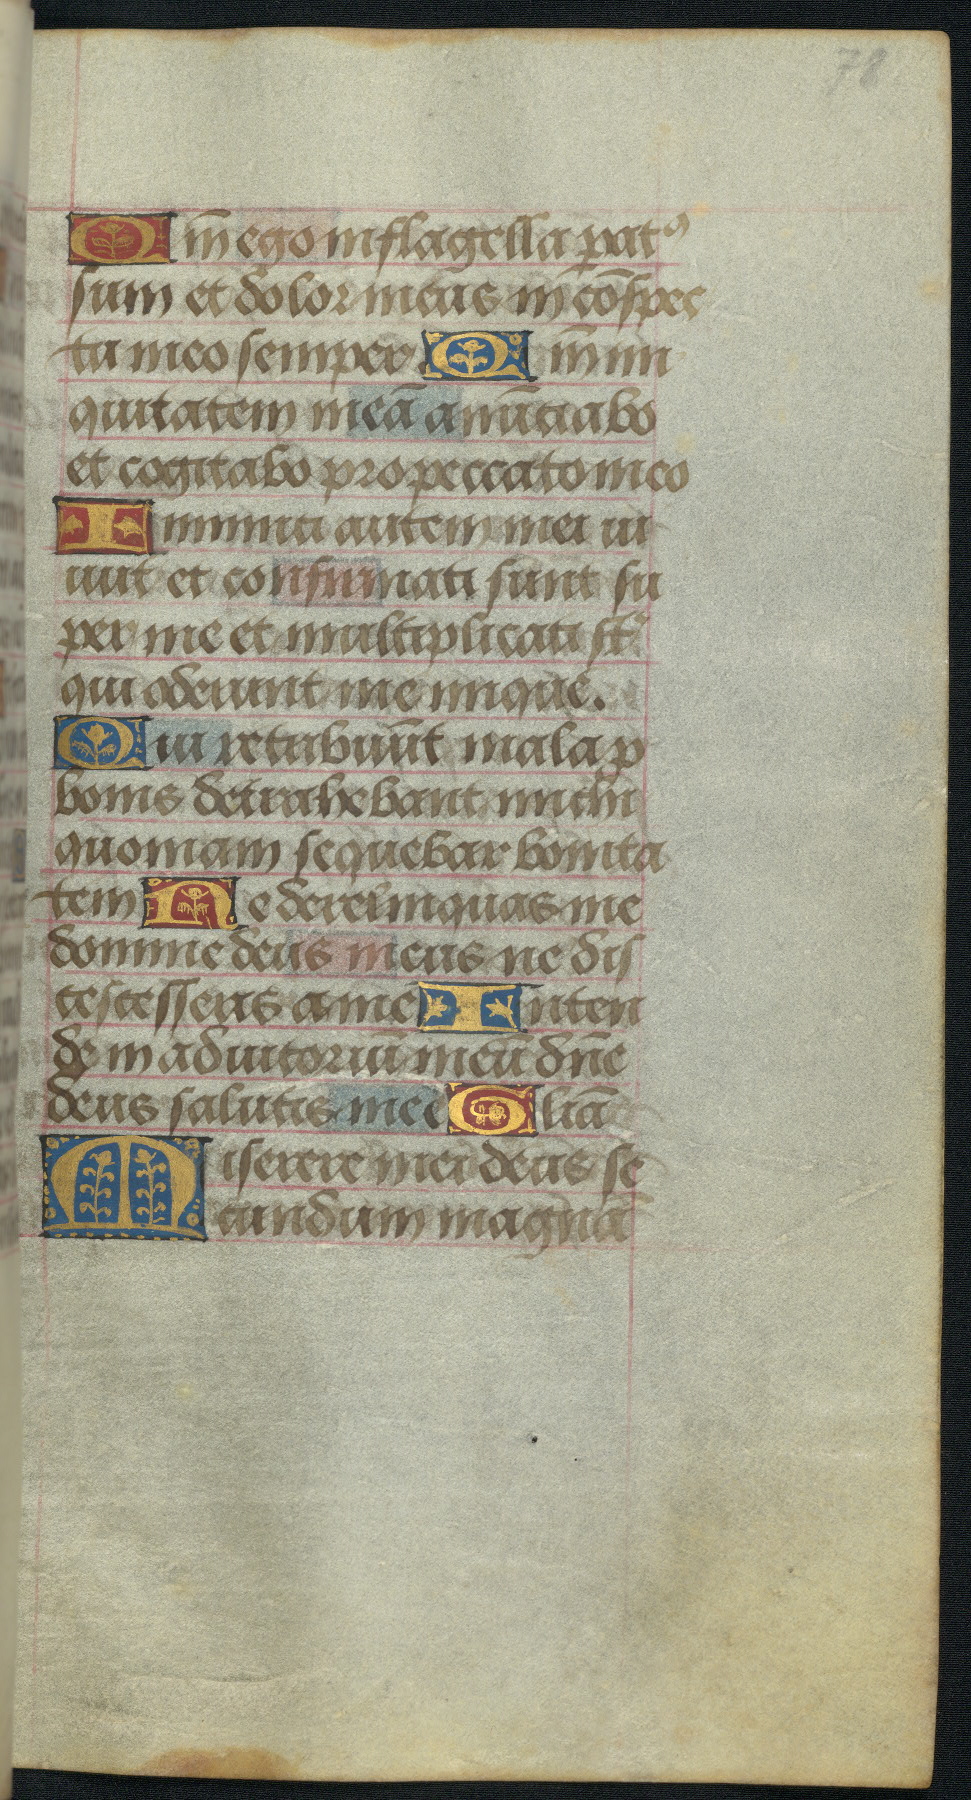 78
Qm̄ ego in flagella parat⁹
sum et dolor meus in cōspec
tu meo semper Qm̄ ini
quitatem meā anūtiabo
et cogitabo pro peccato meo
Inimici autem mei vi
uut et confirmati sunt su
per me et multiplicati st̄
qui oderunt me inique.
Qui retribuūt mala p
bonis detrahebant michi
quoniam sequebar bonita
tem Ne derelinquas me
domine deus meus ne dis
cescesseris a me Inten
de in adiutoriū meū dn̄e
deus salutis mee Gliā
Miserere mei deus se
cundum magnā